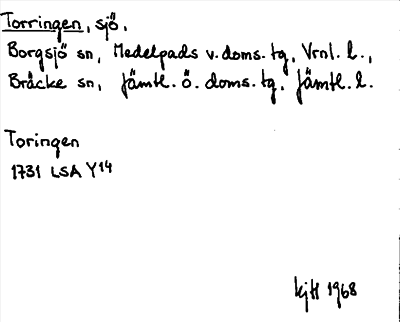 Torringen, sjö,
Borgsjö sn, Medelpads v. doms. tg, Vrnl. l.,
Bräcke sn, Jämtl. ö. doms. tg, Jämtl. l.
Toringen
1731 LSA Y14
kjH 1968